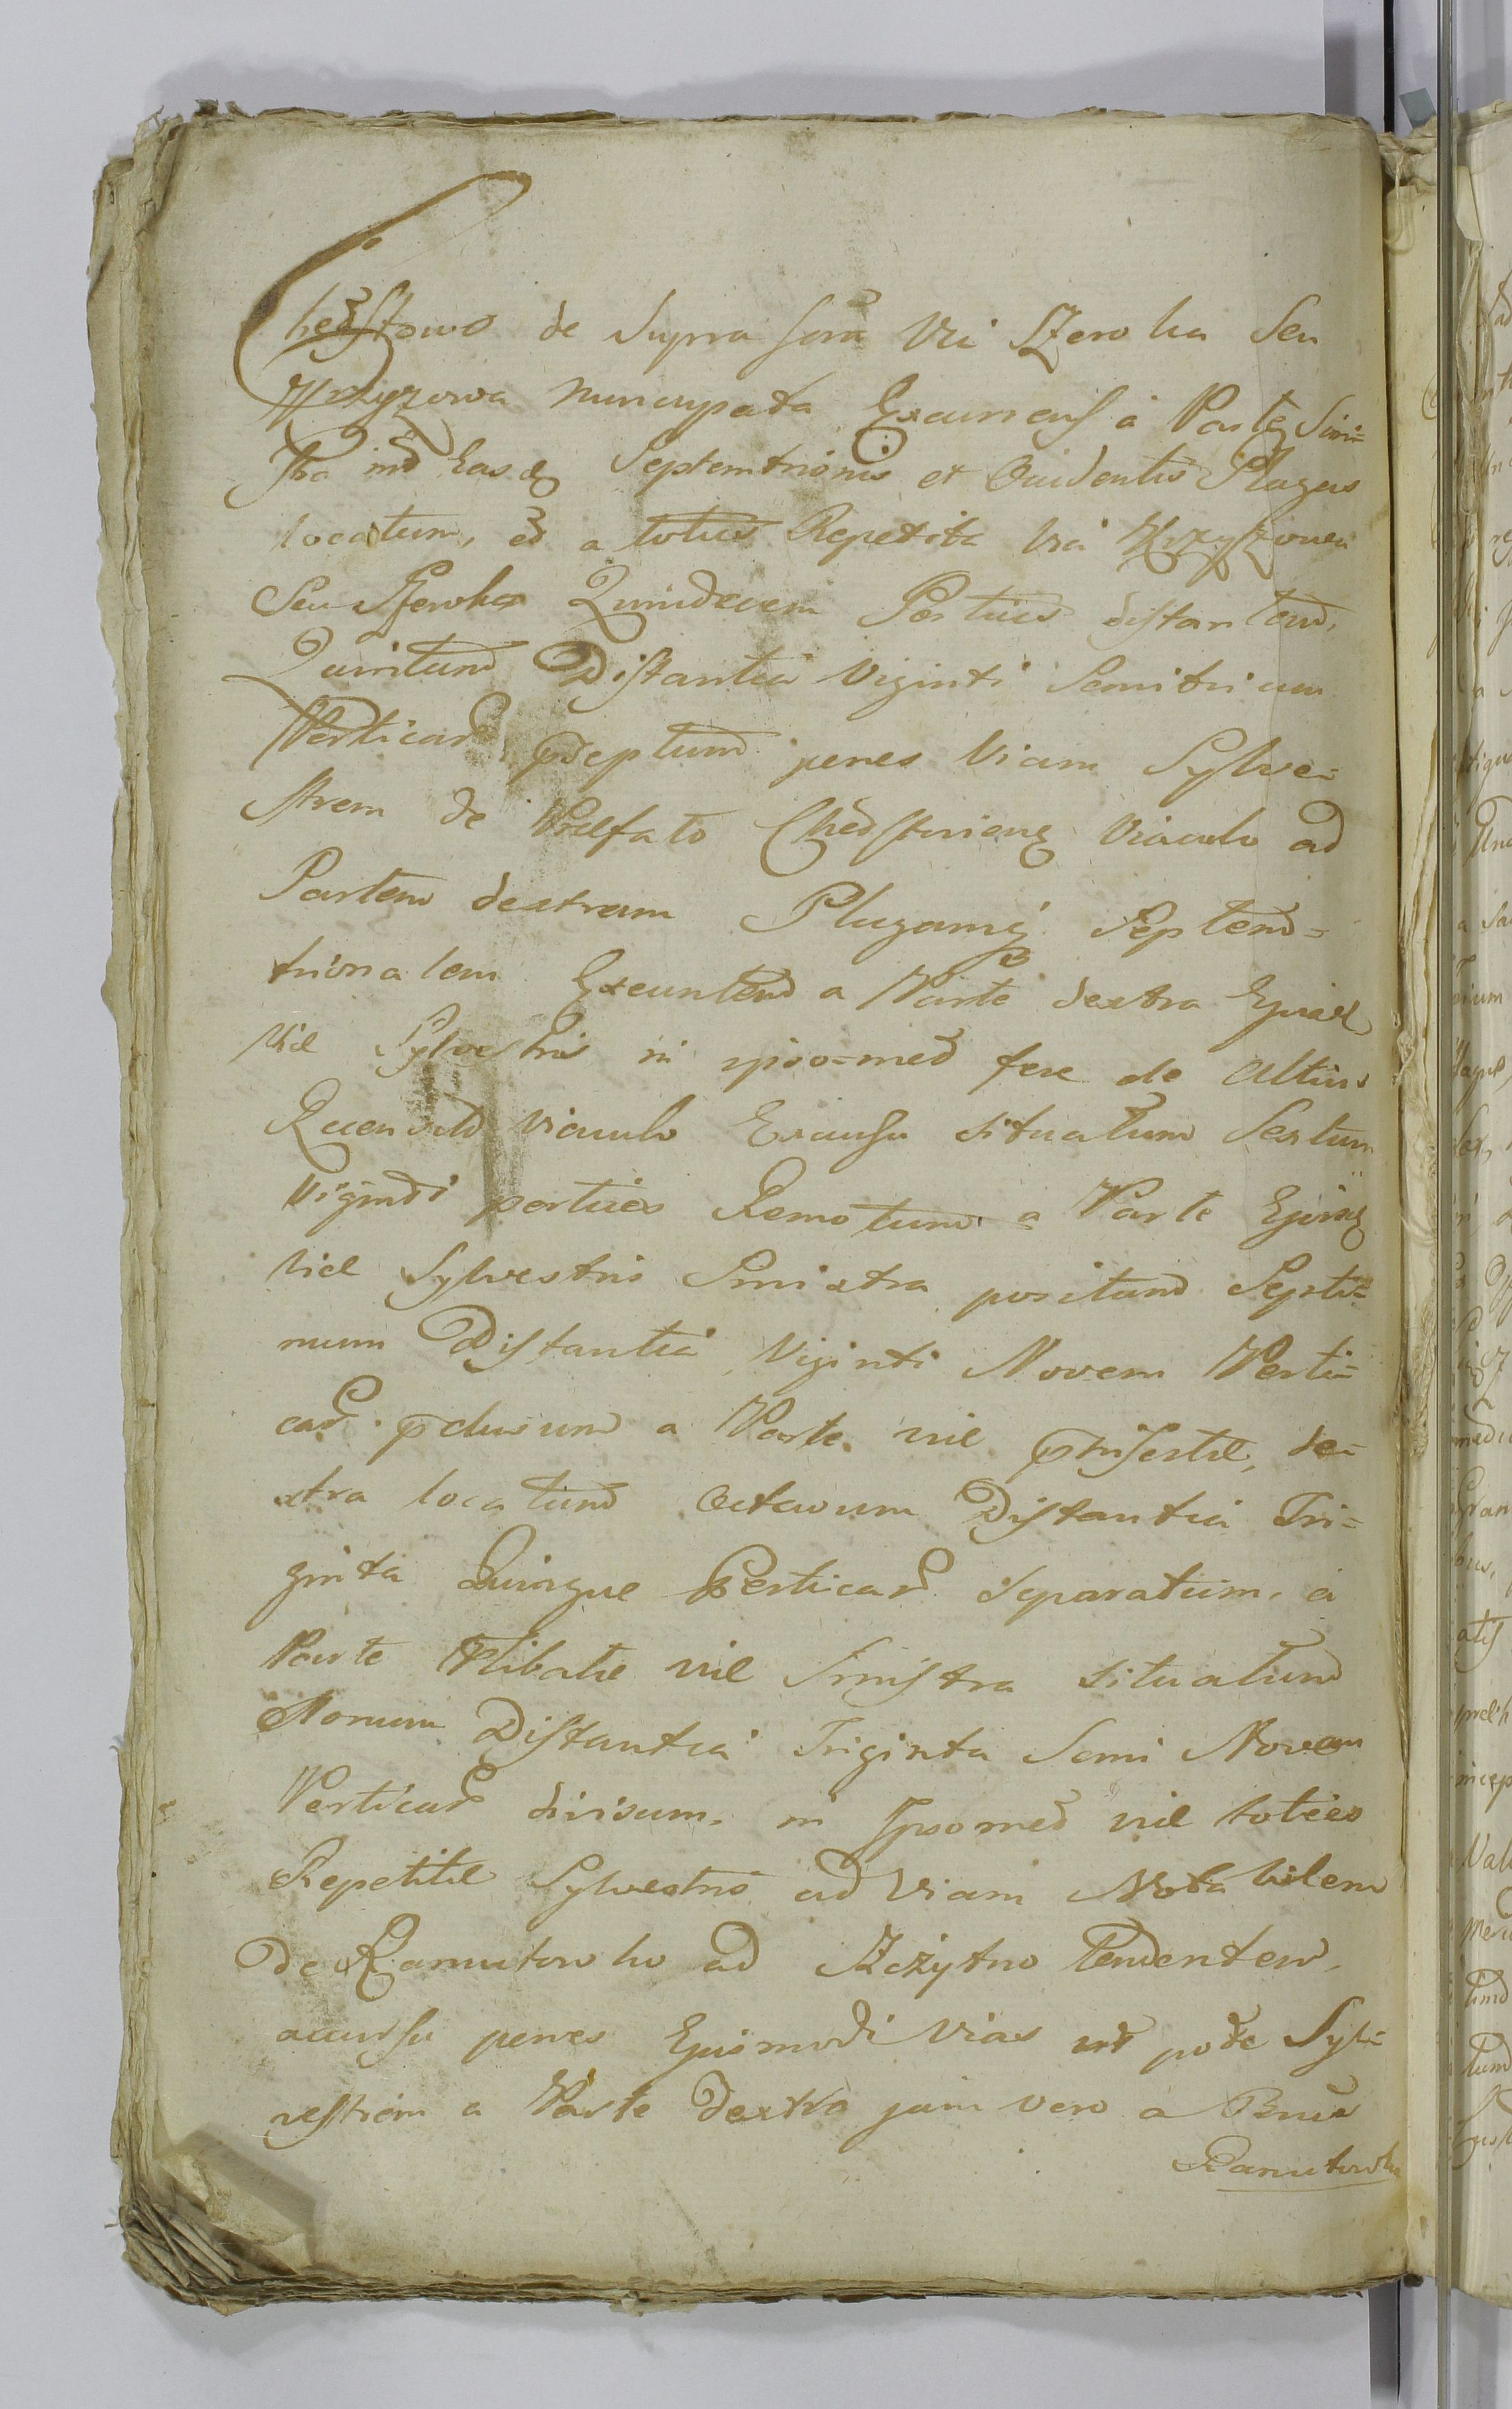 Chedstowo de Supra fata Via Szeroka Seu
Krzyzowa nuncupata Excurrens à Parte Sini=
stra int Easdq Septemtrionis et Occidentis Plagas
locatum, et a toties Repetita Via Krzyszowa
Seu Szeroka Quindecem Perticis distantem,
Quintum Distantia Viginti Semitrium
Perticar. septum penes Viam Sylve=
strem de Præfato Chedstoviens Viculo ad
Partem dextram Plagamq Septem=
trionalem Exeuntem a Parte dextra Ejusd
Viæ Sylvestris in ipso=met fere de Altius
Recensito viculo Excursu situatum Sextum
Viginti perticis Remotum a Parte Ejusd
Viæ Sylvestris Sinistra positum Septi=
mum Distantia Viginti Novem Perti=
car. a Parte viæ dex=
tra locatum Octavum Distantia Tri=
ginta Quinque Perticar Separatum, à
Parte Prælibatæ viæ Sinistra situatum
Nonum Distantia Triginta Semi Novem
Perticar divisum, in Ipsomet viæ toties
Repetitæ Sylvestris ad Viam Notabilem
De Ramutowko ad Szczytno tendentem,
accursu penes Ejusmodi Vias Syl=
vestrem a Parte Dextra jam vero a
Ramutowko